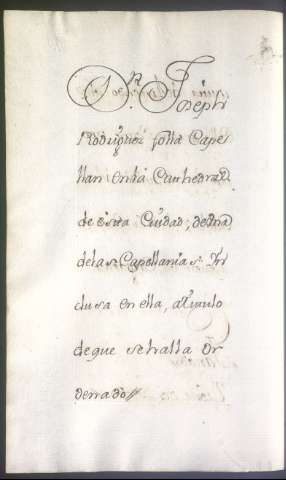 Dn. Joseph
Rodriguez solla Cape
llan en la Cathedral
de esta Ciudad, de una
de las Capellanias In
clusa en ella, a titulo
de que se halla Or
denado